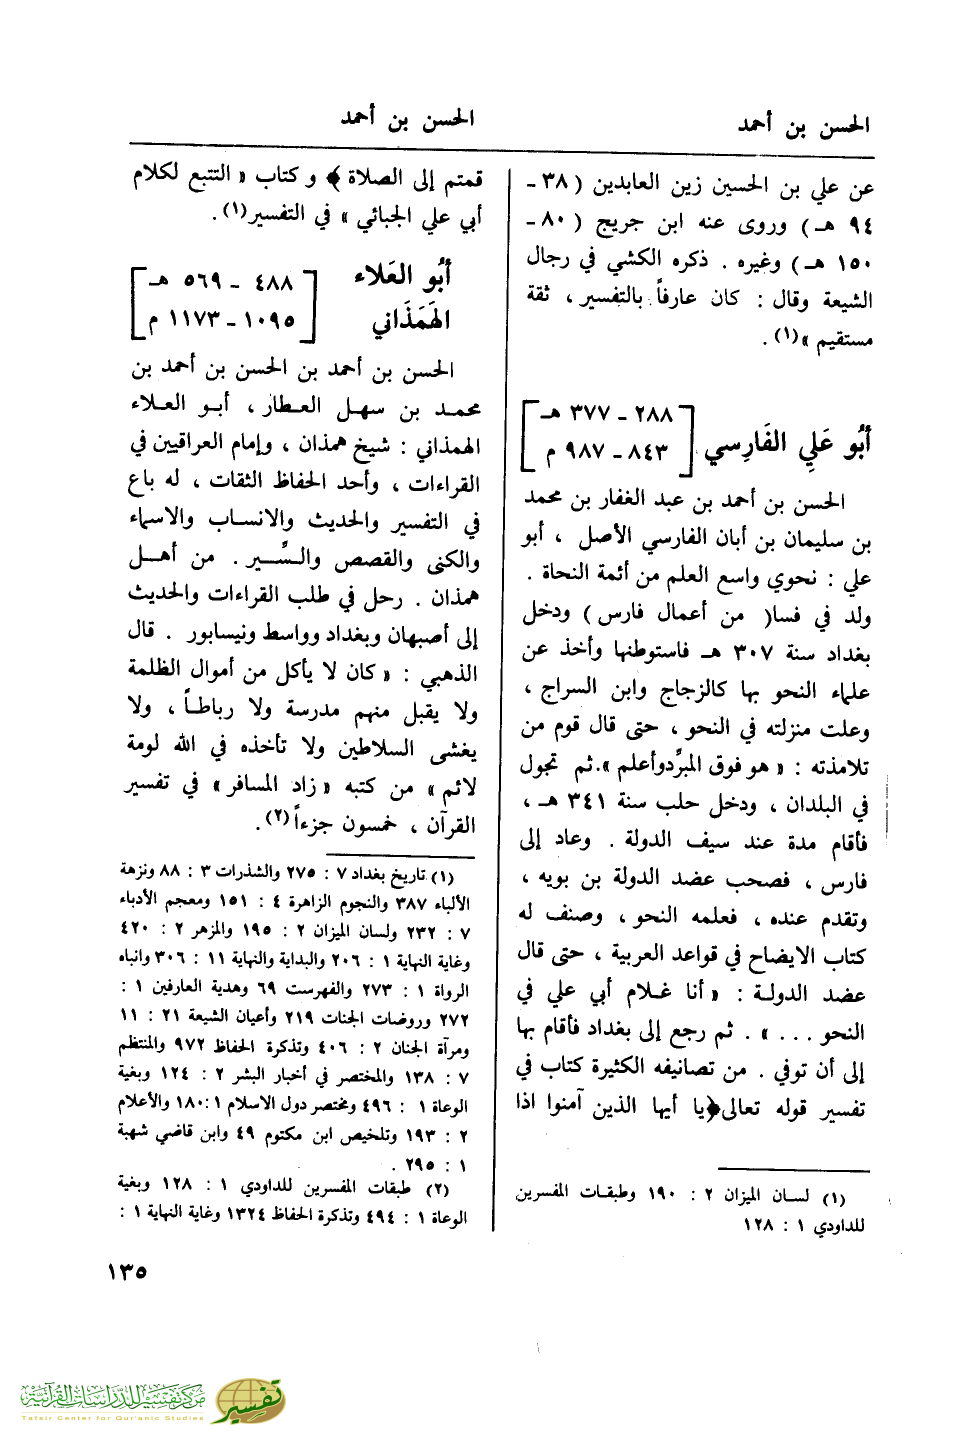 الحسن بن أحمد
الحسن بن أحمد
عن علي بن الحسين زين العابدين ( ٣٨ -
٩٤ هـ ) وروى عنه ابن جريج ( ٨٠ -
١٥٠ هـ ) وغيره . ذكره الكشي في رجال
الشيعة وقال : كان عارفاً بالتفسير ، ثقة
مستقيم » (١) .
أبُو عَلي الفَارِسي
[ ٢٨٨ - ٣٧٧ هـ
٨٤٣ - ٩٨٧ م ]
الحسن بن أحمد بن عبد الغفار بن محمد
بن سليمان بن أبان الفارسي الأصل ، أبو
علي : نحوي واسع العلم من أئمة النحاة .
ولد في فسا( من أعمال فارس ) ودخل
بغداد سنة ٣٠٧ هـ فاستوطنها وأخذ عن
علماء النحو بها كالزجاج وابن السراج ،
وعلت منزلته في النحو ، حتى قال قوم من
تلامذته : « هو فوق المبرِّدوأعلم ».ثم تجول
في البلدان ، ودخل حلب سنة ٣٤١ هـ ،
فأقام مدة عند سيف الدولة . وعاد إلى
فارس ، فصحب عضد الدولة بن بويه ،
وتقدم عنده ، فعلمه النحو ، وصنف له
كتاب الايضاح في قواعد العربية ، حتى قال
عضد الدولة : « أنا غلام أبي علي في
النحو . . . » . ثم رجع إلى بغداد فأقام بها
إلى أن توفي . من تصانيفه الكثيرة كتاب في
تفسير قوله تعالى﴿يا أيها الذين آمنوا اذا
(١) لسان الميزان ٢ : ١٩٠ وطبقات المفسرين
للداودي ١ : ١٢٨
قمتم إلى الصلاة ﴾ و كتاب « التتبع لكلام
أبي علي الجبائي » في التفسير(١) .
أبُو العَلاء
الهَمَذَاني
[ ٤٨٨ - ٥٦٩ هـ
١٠٩٥ - ١١٧٣ م ]
الحسن بن أحمد بن الحسن بن أحمد بن
محمد بن سهل العطار ، أبو العلاء
الهمذاني : شيخ همذان ، وإمام العراقيين في
القراءات ، وأحد الحفاظ الثقات ، له باع
في التفسير والحديث والانساب والاسماء
والكنى والقصص والسِّير . من أهل
همذان . رحل في طلب القراءات والحديث
إلى أصبهان وبغداد وواسط ونيسابور . قال
الذهبي : « كان لا يأكل من أموال الظلمة
ولا يقبل منهم مدرسة ولا رباطاً ، ولا
يغشى السلاطين ولا تأخذه في الله لومة
لائم » من كتبه « زاد المسافر » في تفسير
القرآن ، خمسون جزءاً (٢) .
(١) تاريخ بغداد ٧ : ٢٧٥ والشذرات ٣ : ٨٨ ونزهة
الألباء ٣٨٧ والنجوم الزاهرة ٤ : ١٥١ ومعجم الأدباء
٧ : ٢٣٢ ولسان الميزان ٢ : ١٩٥ والمزهر ٢ : ٤٢٠
وغاية النهاية ١ : ٢٠٦ والبداية والنهاية ١١ : ٣٠٦ وانباه
الرواة ١ : ٢٧٣ والفهرست ٦٩ وهدية العارفين ١ :
٢٧٢ وروضات الجنات ٢١٩ وأعيان الشيعة ٢١ : ١١
ومرآة الجنان ٢ : ٤٠٦ وتذكرة الحفاظ ٩٧٢ والمنتظم
٧ : ١٣٨ والمختصر في أخبار البشر ٢ : ١٢٤ وبغية
الوعاة ١ : ٤٩٦ ومختصر دول الاسلام ١ :١٨٠ والأعلام
٢ : ١٩٣ وتلخيص ابن مكتوم ٤٩ وابن قاضي شهبة
١ : ٢٩٥ .
(٢) طبقات المفسرين للداودي ١ : ١٢٨ وبغية
الوعاة ١ : ٤٩٤ وتذكرة الحفاظ ١٣٢٤ وغاية النهاية ١ :
١٣٥
مركز تفسير للدراسات القرآنية
Tafsir Center for Qur'anic Studies
تفسير